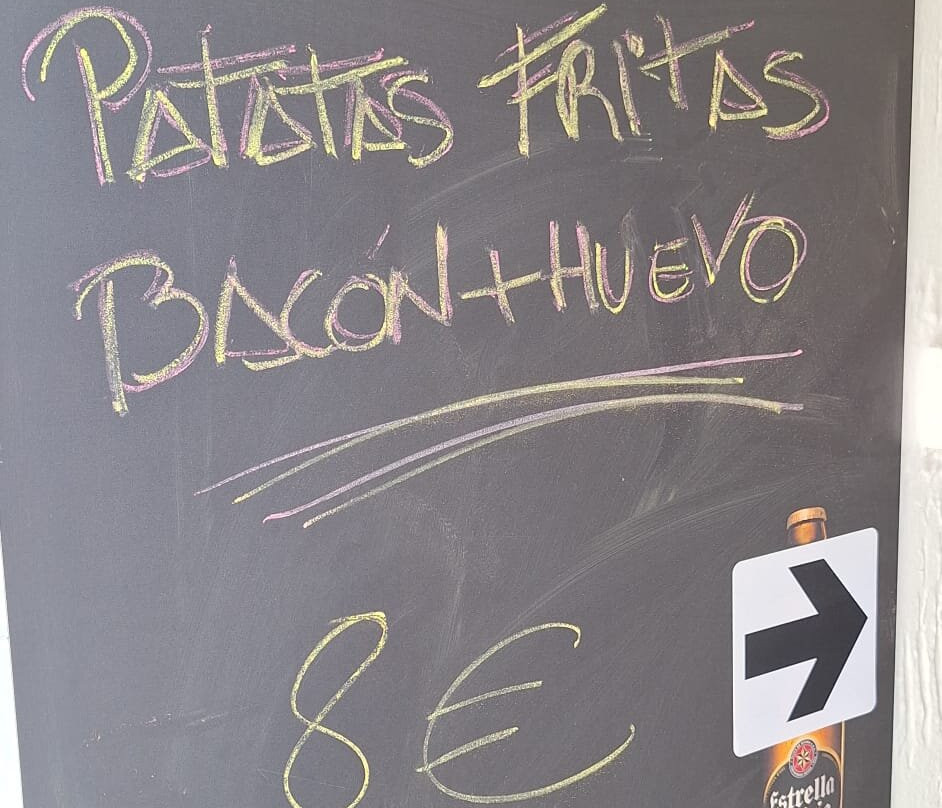 PATATAS FRITAS
BACÓN + HUEVO
8 €
Estrella